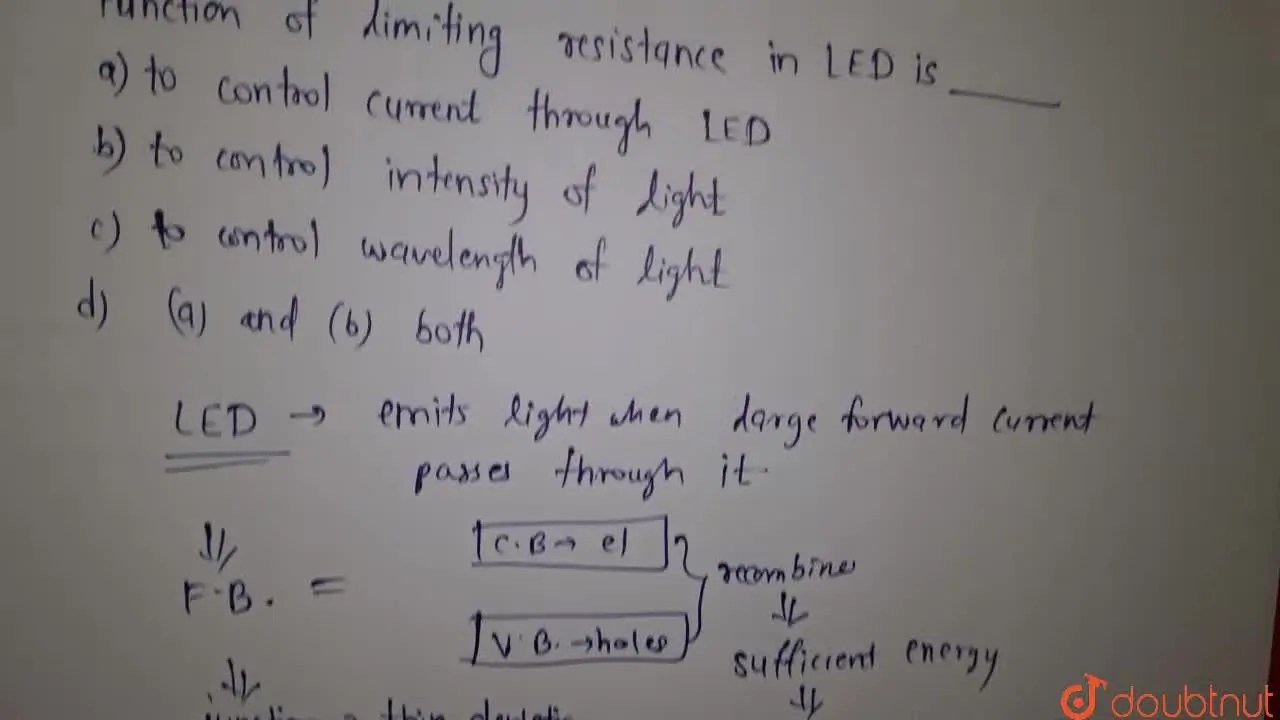 function of limiting resistance in LED is ____
a) to control current through LED
b) to control intensity of light
c) to control wavelength of light
d) (a) and (b) both
LED → emits light when large forward current
passes through it.
C.B → el
F.B. =
recombine
V.B. → holes
sufficient energy
doubtnut